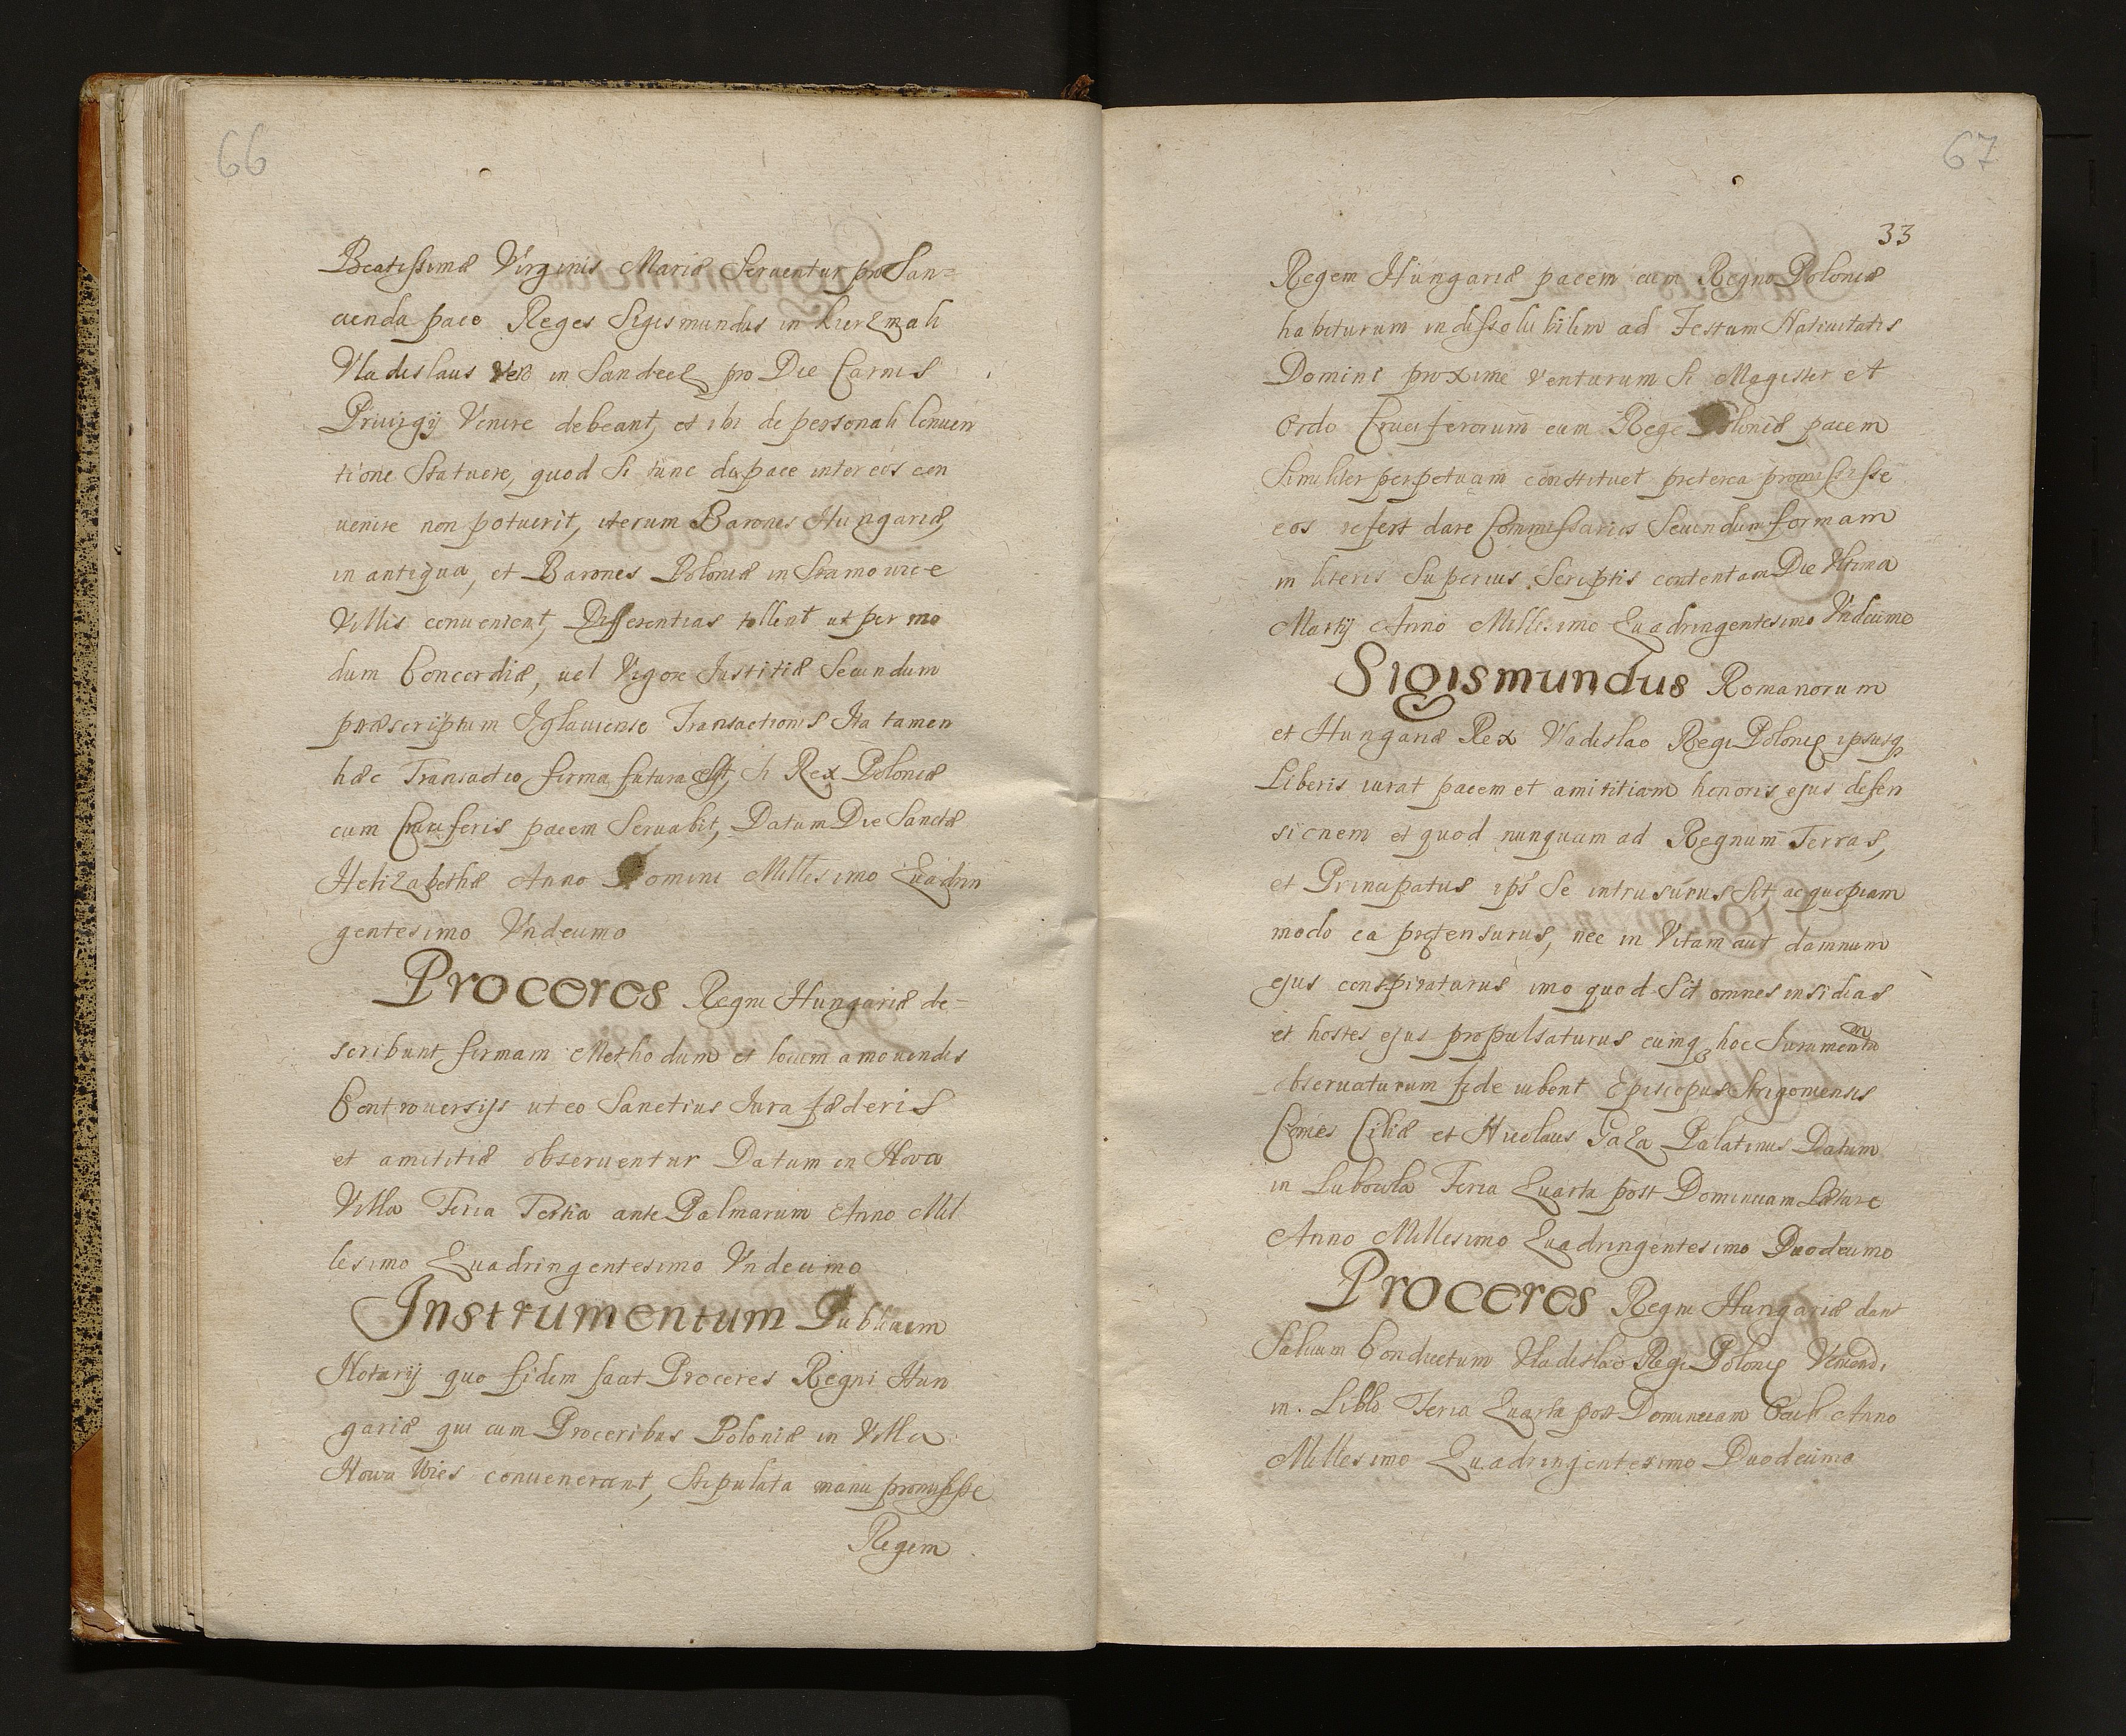 66
Beatissimæ Virginis Mariæ Seruentur pro San=
cienda pace Reges Sigismundus in Kierzmali
Vladislaus Vero in Sandecz pro Die Carnis
Priuigÿ Venire debeant, et ibi de personali Conuen
tione Statuere, quod Si tunc de pace inter eos con
uenire non potuerit, iterum Barones Hungariæ,
in antiqua, et Barones Poloniæ in
Villis conuenient, Differentias tollent ut per mo
dum Concordiæ, uel Vigore Justitiæ Secundum
præscriptum Iglauiense Transactionis Ita tamen
hæc Transactio firma futura est, Si Rex Poloniæ
cum Cruciferis pacem Seruabit, Datum Die Sanctæ
Helizabethæ Anno Domini Millesimo Quadrin
gentesimo Vndecimo
Proceres Regni Hungariæ de=
scribunt firmam Methodum et locum amouendis
Controuersijs ut eo Sanctius Jura fæderis
et amititiæ obseruentur Datum in Nova
Villa Feria Tertia ante Palmarum Anno Mil
lesimo Quadringentesimo Vndecimo
Instrumentum Publicum
Notarÿ quo fidem faat Proceres Regni Hun
gariæ qui cum Proceribus Poloniæ in Villa
Nowa Wies conuenerant, Stipulata manu promisisse
Regem
67
33
Regem Hungariæ pacem cum Regno Poloniæ
habiturum indissolubilem ad Festum Natiuitatis
Domini proxime Venturum Si Magister et
Ordo Cruciferorum cum Rege Poloniæ pacem
Similiter perpetuam constituet preterea promisisse
eos refert dare Commissarios Secundum formam
in literis Superius Scriptis contentam Die Vltima
Martÿ Anno Millesimo Quadringentesimo Vndecimo
Sigismundus Romanorum
et Hungariæ Rex Vladislao Regi Polonię ipsiusq3
Liberis iurat pacem et amititiam honoris ejus defen
sionem et quod nunquam ad Regnum Terras,
et Principatus ips Se intrusurus Sit ac quopiam
modo ea prętensurus, nec in Vitam aut damnum
ejus conspiraturus imo quod Sit omnes insidias
et hostes ejus propulsaturus eumq3 hoc Juramentum
obseruaturum fide iubent Episcopus Strigomensis
Comes Ciliæ et Nicolaus Gaza Palatinus Datum
in Lubowla Feria Quarta post Dominicam Lætare
Anno Millesimo Quadringentesimo Duodecimo
Proceres Regni Hungariæ dant
Saluum Conductum Vladislao Regi Polonię Veniendi
in. Liblo Feria Quarta post Dominicam Oculi Anno
Millesimo Quadringentesimo Duodecimo